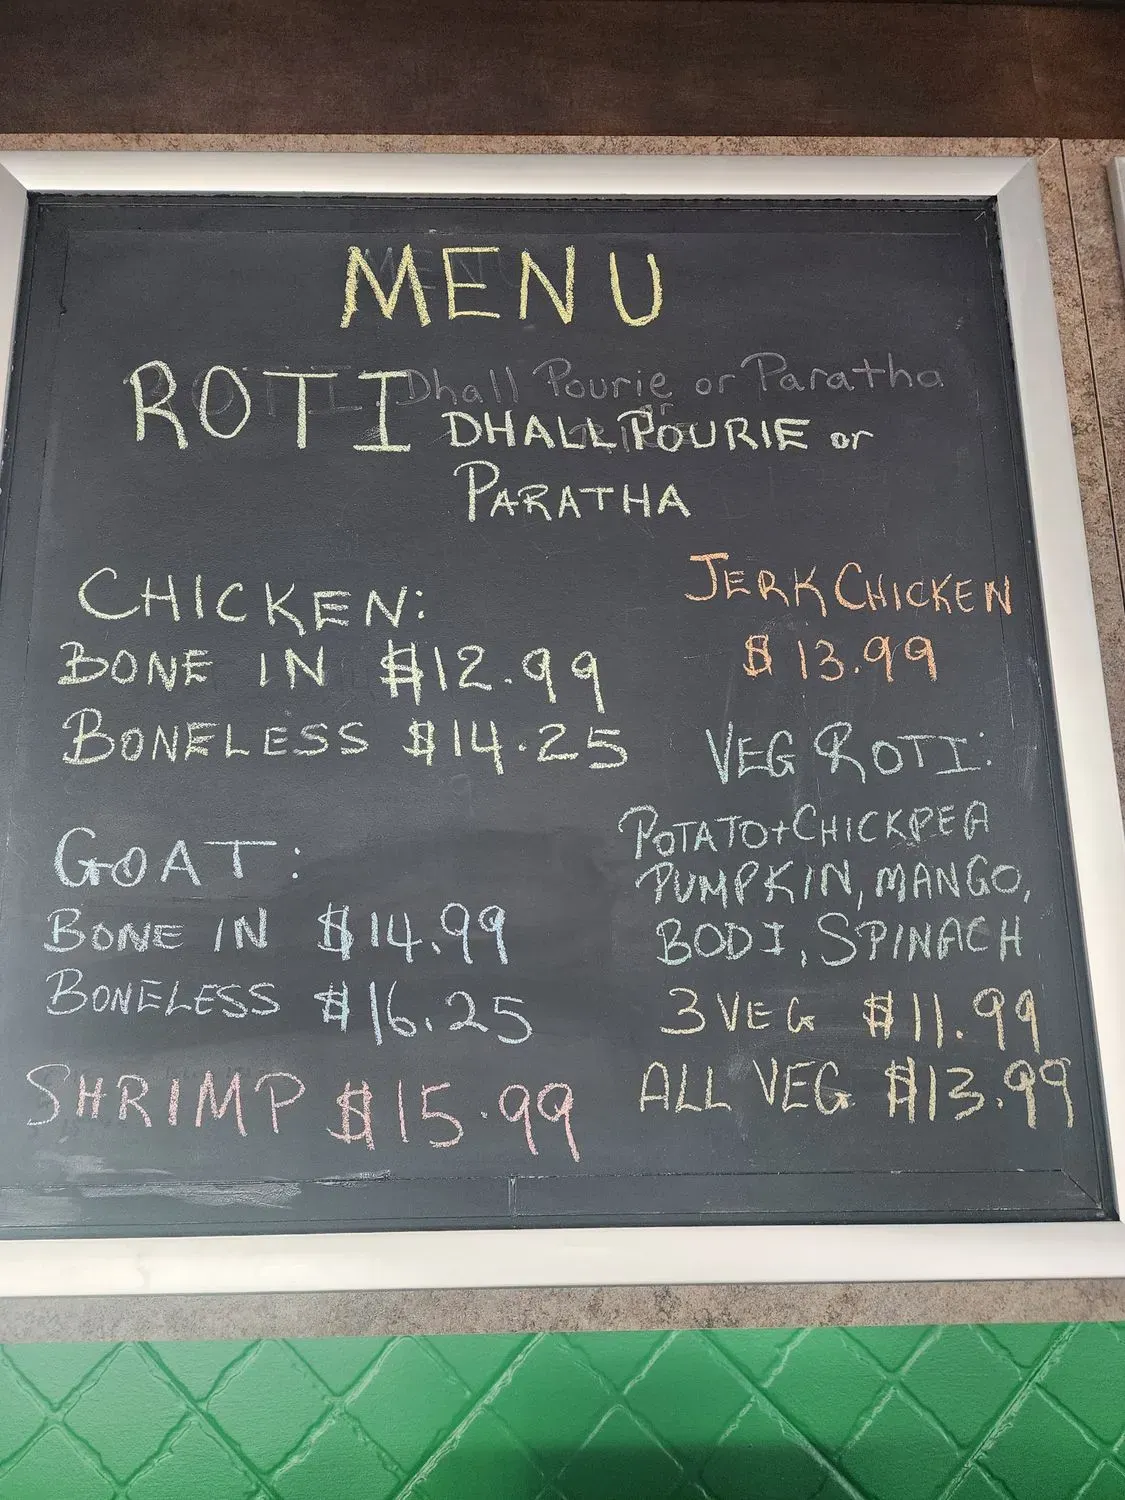 MENU
ROTI Dhall Pourie or Paratha
or
DHALL POURIE or
PARATHA
CHICKEN:
BONE IN $12.99
BONELESS $14.25
GOAT:
BONE IN $14.99
BONELESS $16.25
SHRIMP $15.99
JERK CHICKEN
$13.99
VEG ROTI:
POTATO+CHICKPEA
PUMPKIN, MANGO,
BODI, SPINACH
3 VEG $11.99
ALL VEG $13.99